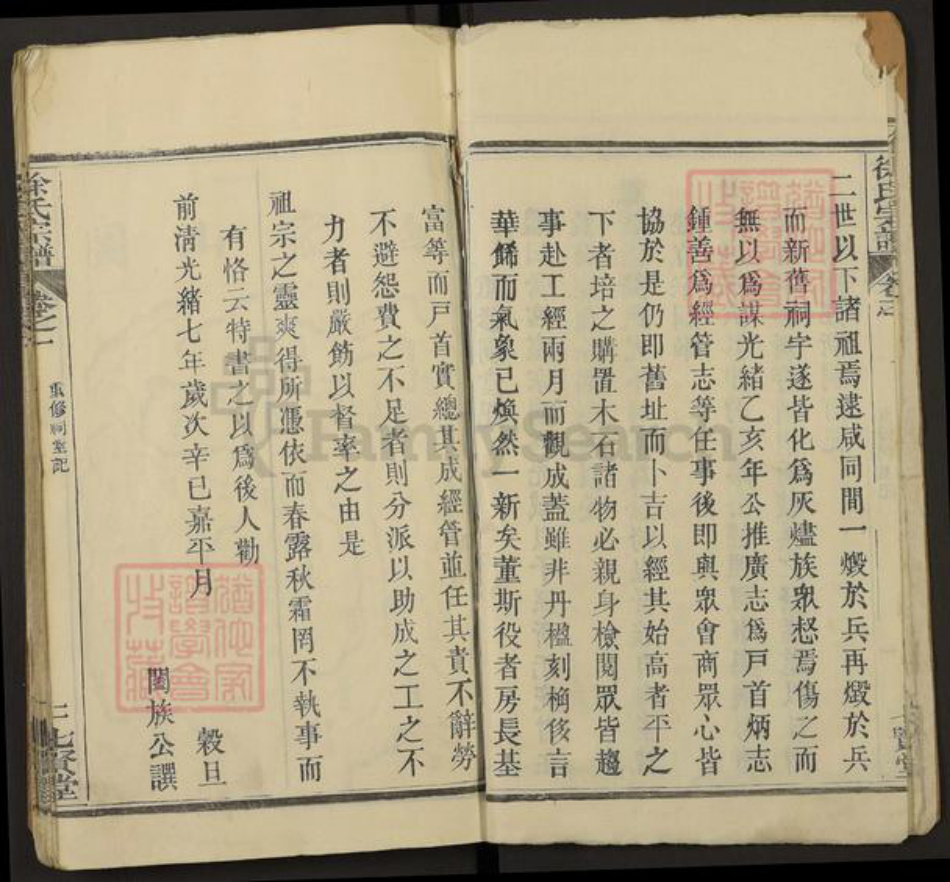 徐氏宗譜
卷之一
二世以下諸祖焉逮咸同間一燬於兵再燬於兵
而新舊祠宇遂皆化為灰燼族衆惄焉傷之而
無以為謀光緒乙亥年公推廣志為戶首炳志
鍾善為經管志等任事後即與眾會商眾心皆
協於是仍即舊址而卜吉以經其始高者平之
下者培之購置木石諸物必親身檢閱眾皆趨
事赴工經兩月而觀成蓋雖非丹楹刻桷侈言
華餙而氣象已煥然一新矣董斯役者房長基
富等而戶首實總其成經管並任其責不辭勞
不避怨費之不足者則分派以助成之工之不
力者則嚴飭以督率之由是
祖宗之靈爽得所憑依而春露秋霜罔不執事而
有恪云特書之以為後人勸
前清光緒七年歲次辛巳嘉平月
穀旦
闔族公譔
徐氏宗譜
卷之一
重修祠堂記
二
七賢堂
猶他家
譜學會
收藏
FamilySearch